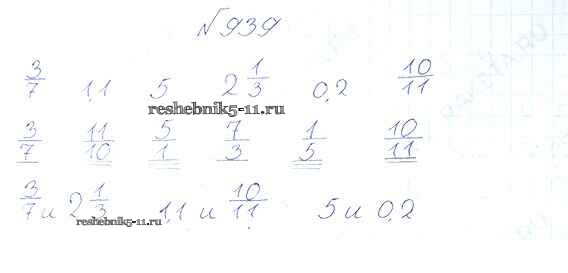 №939
3/7 1,1 5 2 1/3 0,2 10/11
reshebnik5-11.ru
3/7 11/10 5/1 7/3 1/5 10/11
3/7 и 2 1/3 1,1 и 10/11 5 и 0,2
reshebnik5-11.ru